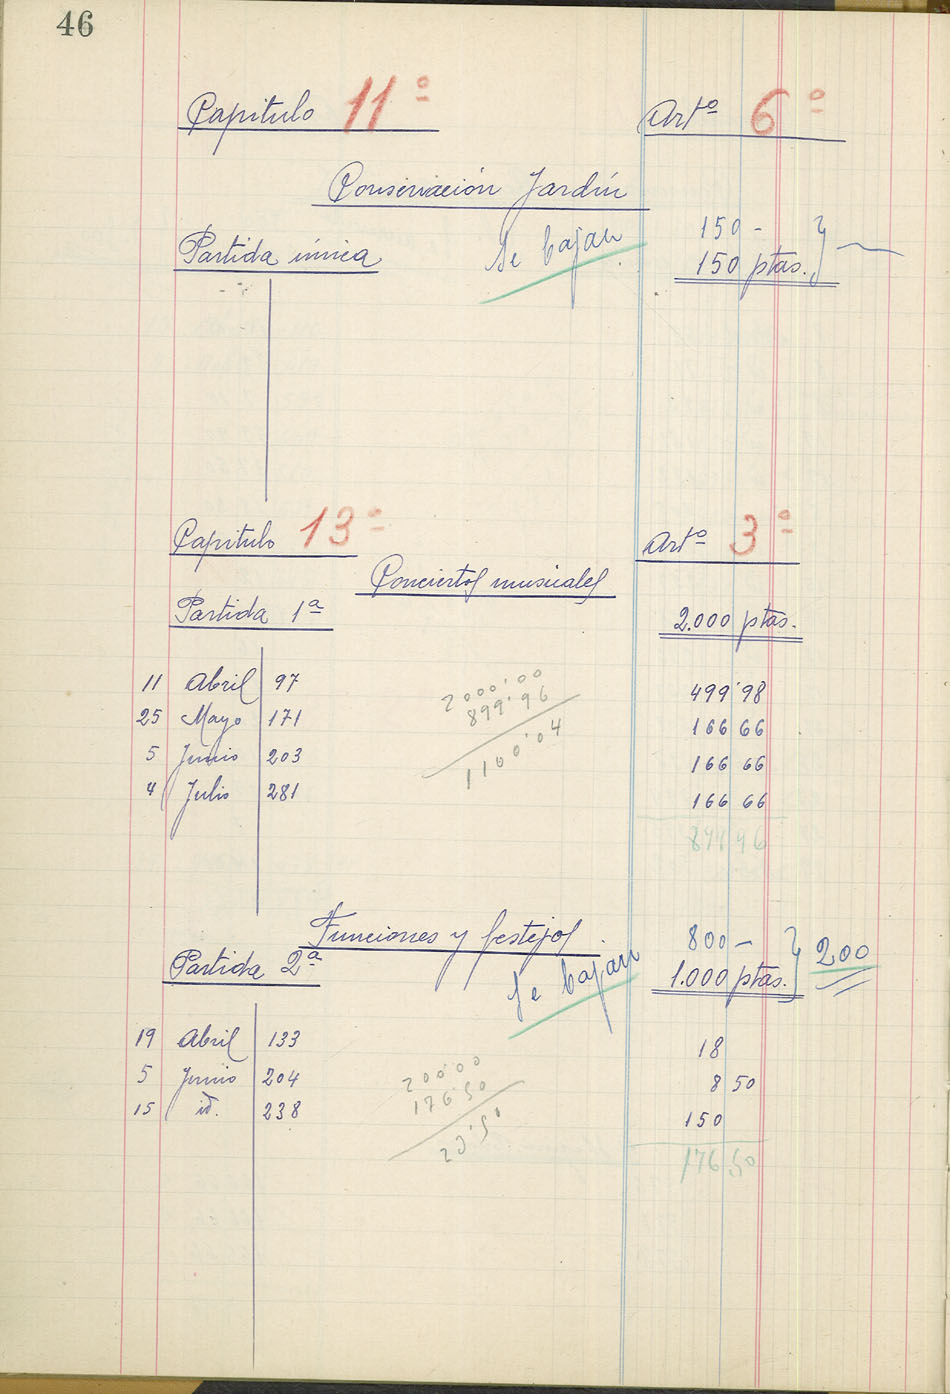 46
Capitulo 11º Artº 6º
Conservación Jardín
150 -
Partida única Se bajan 150 ptas.
Capitulo 13º Artº 3º
Conciertos musicales
Partida 1ª 2.000 ptas.
11 Abril 97 499'98
25 Mayo 171 166 66
5 Junio 203 166 66
4 Julio 281 166 66
2000'00
899'96
1100'04
899 96
Funciones y festejos 800 -
Partida 2ª Se bajan 1.000 ptas. 200
19 Abril 133 18
5 Junio 204 8 50
15 id. 238 150
200'00
176'50
23'50
176,50